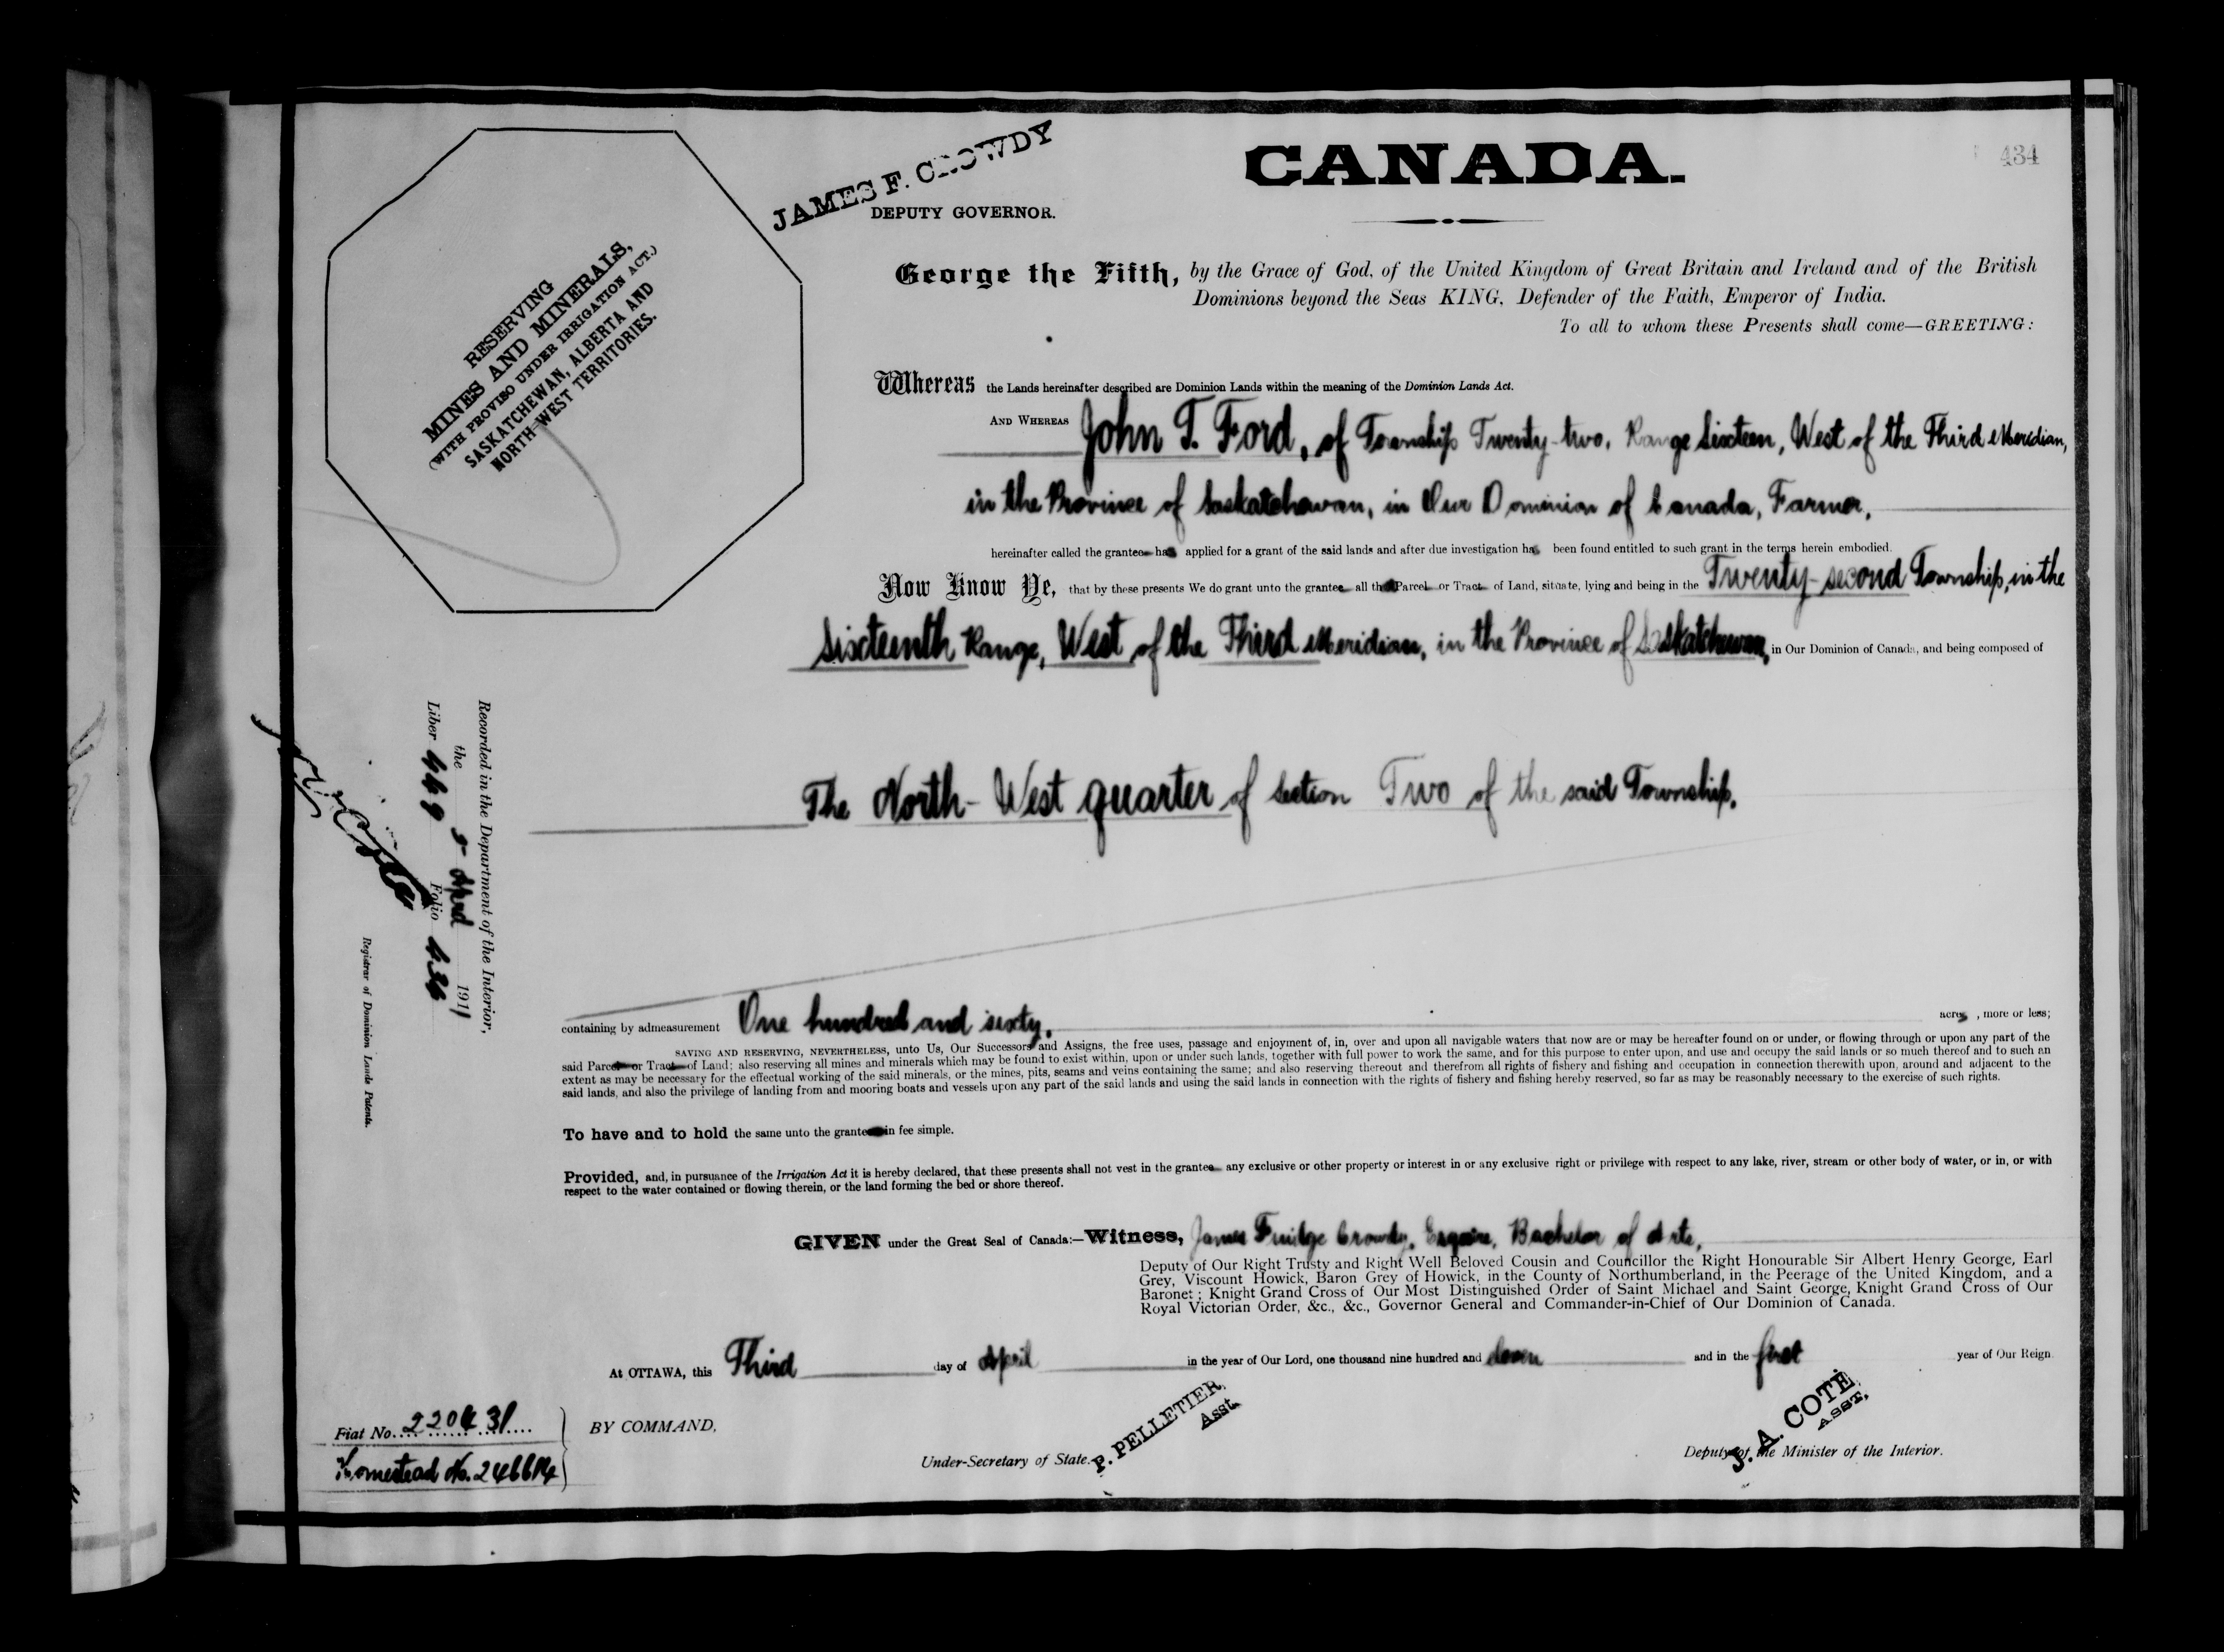 CANADA.
434
JAMES F. CROWDY
DEPUTY GOVERNOR.
RESERVING
MINES AND MINERALS,
(WITH PROVISO UNDER IRRIGATION ACT.)
SASKATCHEWAN, ALBERTA AND
NORTH WEST TERRITORIES.
George the Fifth, by the Grace of God, of the United Kingdom of Great Britain and Ireland and of the British
Dominions beyond the Seas KING, Defender of the Faith, Emperor of India.
To all to whom these Presents shall come—GREETING:
Whereas the Lands hereinafter described are Dominion Lands within the meaning of the Dominion Lands Act.
AND WHEREAS John T. Ford, of Township Twenty-two, Range Sixteen, West of the Third Meridian,
in the Province of Saskatchewan, in Our Dominion of Canada, Farmer,
hereinafter called the grantee has applied for a grant of the said lands and after due investigation has been found entitled to such grant in the terms herein embodied.
Now Know Ye, that by these presents We do grant unto the grantee all that Parcel or Tract of Land, situate, lying and being in the Twenty-second Township, in the
Sixteenth Range, West of the Third Meridian, in the Province of Saskatchewan, in Our Dominion of Canada, and being composed of
The North-West quarter of Section Two of the said Township.
containing by admeasurement One hundred and sixty, acres, more or less;
SAVING AND RESERVING, NEVERTHELESS, unto Us, Our Successors and Assigns, the free uses, passage and enjoyment of, in, over and upon all navigable waters that now are or may be hereafter found on or under, or flowing through or upon any part of the
said Parcel or Tract of Land; also reserving all mines and minerals which may be found to exist within, upon or under such lands, together with full power to work the same, and for this purpose to enter upon, and use and occupy the said lands or so much thereof and to such an
extent as may be necessary for the effectual working of the said minerals, or the mines, pits, seams and veins containing the same; and also reserving thereout and therefrom all rights of fishery and fishing and occupation in connection therewith upon, around and adjacent to the
said lands, and also the privilege of landing from and mooring boats and vessels upon any part of the said lands and using the said lands in connection with the rights of fishery and fishing hereby reserved, so far as may be reasonably necessary to the exercise of such rights.
To have and to hold the same unto the grantee in fee simple.
Provided, and, in pursuance of the Irrigation Act it is hereby declared, that these presents shall not vest in the grantee any exclusive or other property or interest in or any exclusive right or privilege with respect to any lake, river, stream or other body of water, or in, or with
respect to the water contained or flowing therein, or the land forming the bed or shore thereof.
GIVEN under the Great Seal of Canada:—Witness, James Fuidge Crowdy, Esquire, Bachelor of Arts,
Deputy of Our Right Trusty and Right Well Beloved Cousin and Councillor the Right Honourable Sir Albert Henry George, Earl
Grey, Viscount Howick, Baron Grey of Howick, in the County of Northumberland, in the Peerage of the United Kingdom, and a
Baronet; Knight Grand Cross of Our Most Distinguished Order of Saint Michael and Saint George, Knight Grand Cross of Our
Royal Victorian Order, &c., &c., Governor General and Commander-in-Chief of Our Dominion of Canada.
At OTTAWA, this Third day of April in the year of Our Lord, one thousand nine hundred and eleven and in the first year of Our Reign
BY COMMAND,
P. PELLETIER
Asst.
Under-Secretary of State.
J. A. COTÉ
ASST.
Deputy of the Minister of the Interior.
Fiat No. 220431
Homestead No. 246614
Recorded in the Department of the Interior,
the 5 April 1911
Liber 449 Folio 434
Registrar of Dominion Lands Patents.